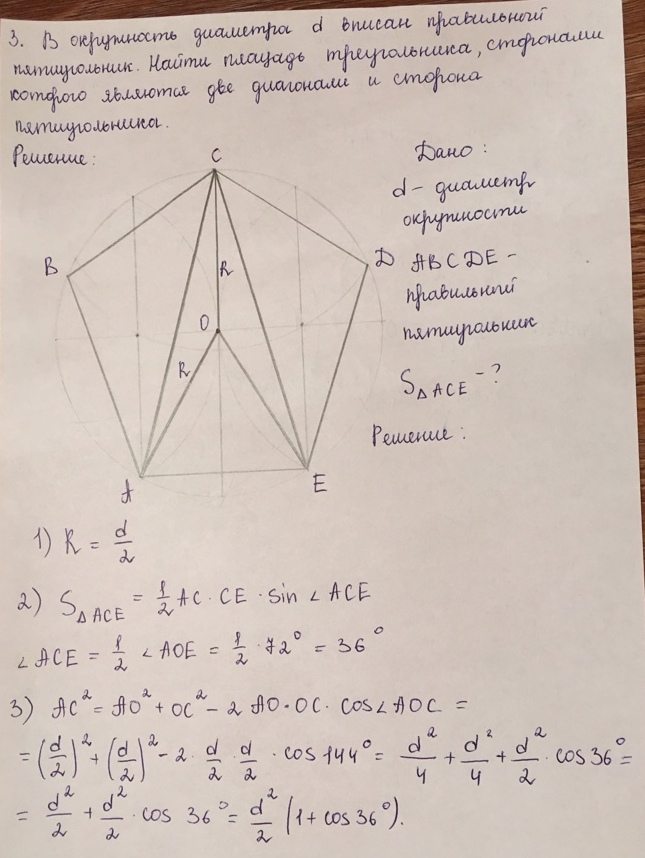 3. В окружность диаметра d вписан правильный
пятиугольник. Найти площадь треугольника, сторонами
которого являются две диагонами и сторона
пятиугольника.
Решение:
C
Дано:
d - диаметр
окружности
B
D
ABCDE -
правильный
пятиугольник
R
O
R
S△ACE - ?
Решение:
A
E
1) R = d/2
2) S△ACE = 1/2 AC · CE · sin ∠ACE
∠ACE = 1/2 ∠AOE = 1/2 · 72° = 36°
3) AC² = AO² + OC² - 2 AO · OC · cos∠AOC =
= (d/2)² + (d/2)² - 2 · d/2 · d/2 · cos 144° = d²/4 + d²/4 + d²/2 · cos 36° =
= d²/2 + d²/2 · cos 36° = d²/2 (1 + cos 36°).